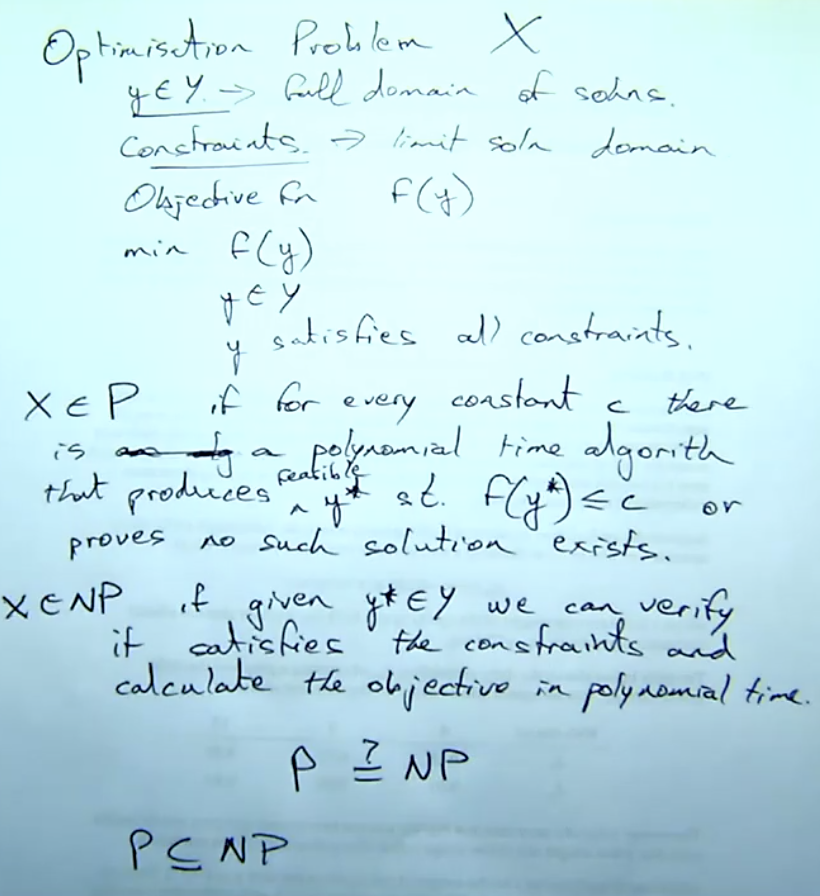 Optimisation Problem X
y ∈ Y. → full domain of solns.
Constraints. → limit soln domain
Objective fn f(y)
min f(y)
y ∈ Y
y satisfies all constraints.
X ∈ P if for every constant c there
is a polynomial time algorith
that produces feasible y* st. f(y*) ≤ c or
proves no such solution exists.
X ∈ NP if given y* ∈ Y we can verify
it satisfies the constraints and
calculate the objective in polynomial time.
P ≟ NP
P ⊆ NP